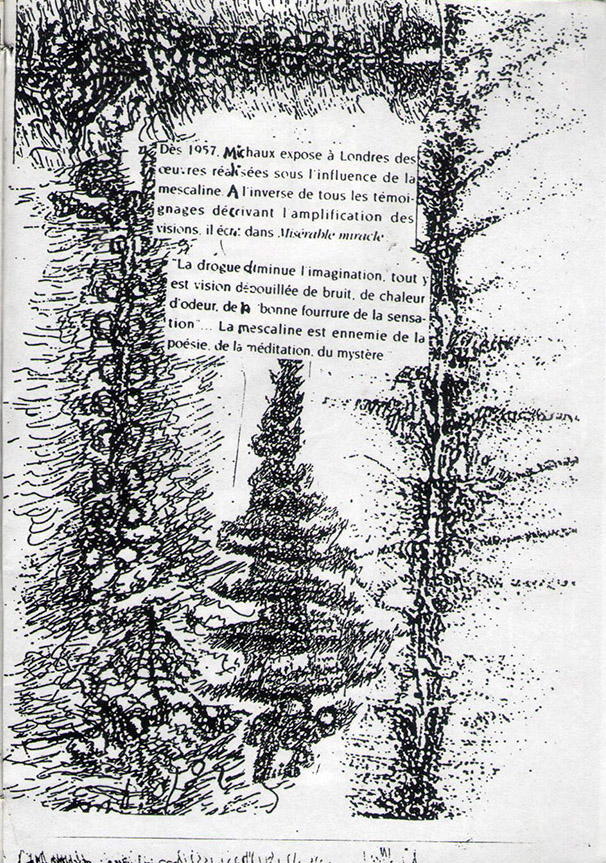 Dès 1957, Michaux expose à Londres des
œuvres réalisées sous l'influence de la
mescaline. A l'inverse de tous les témoi-
gnages décrivant l'amplification des
visions, il écrit dans Misérable miracle
"La drogue diminue l'imagination, tout y
est vision dépouillée de bruit, de chaleur
d'odeur, de la "bonne fourrure de la sensa-
tion"... La mescaline est ennemie de la
poésie, de la méditation, du mystère